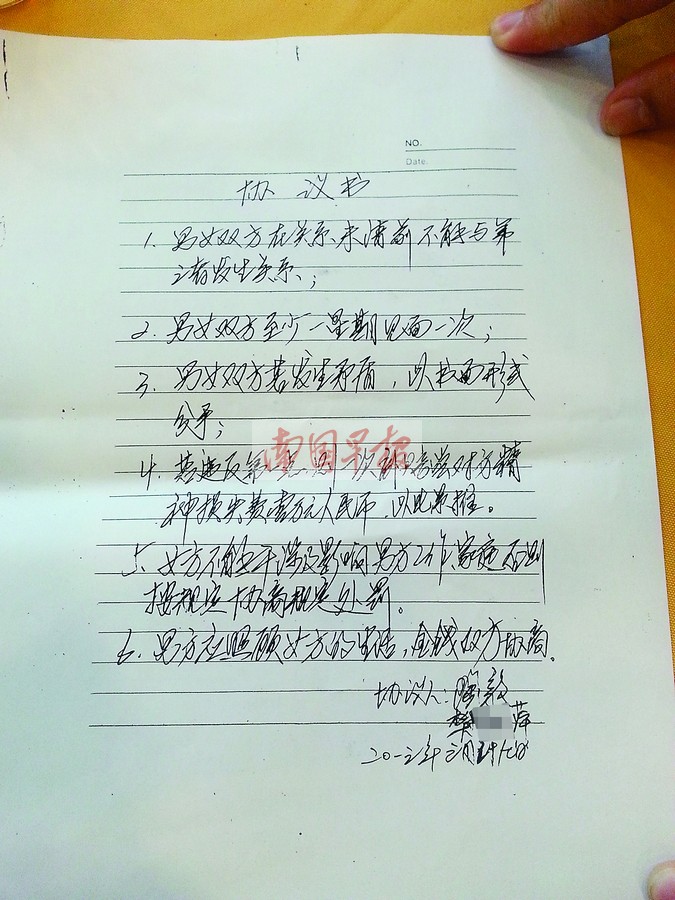 NO.
Date.
协议书
1. 男女双方在关系未清前不能与第
三者发生关系;
2. 男女双方至少一星期见面一次;
3. 男女双方若发生矛盾,以书面形式
分手;
南国早报
4. 若违反第一点,则一次赔偿对方精
神损失费壹万元人民币,以此类推。
5. 女方不能干涉及影响男方工作、家庭否则
按规定协商规定处罚。
6. 男方应照顾女方的生活,金钱双方协商。
协议人: 陶毅
萍